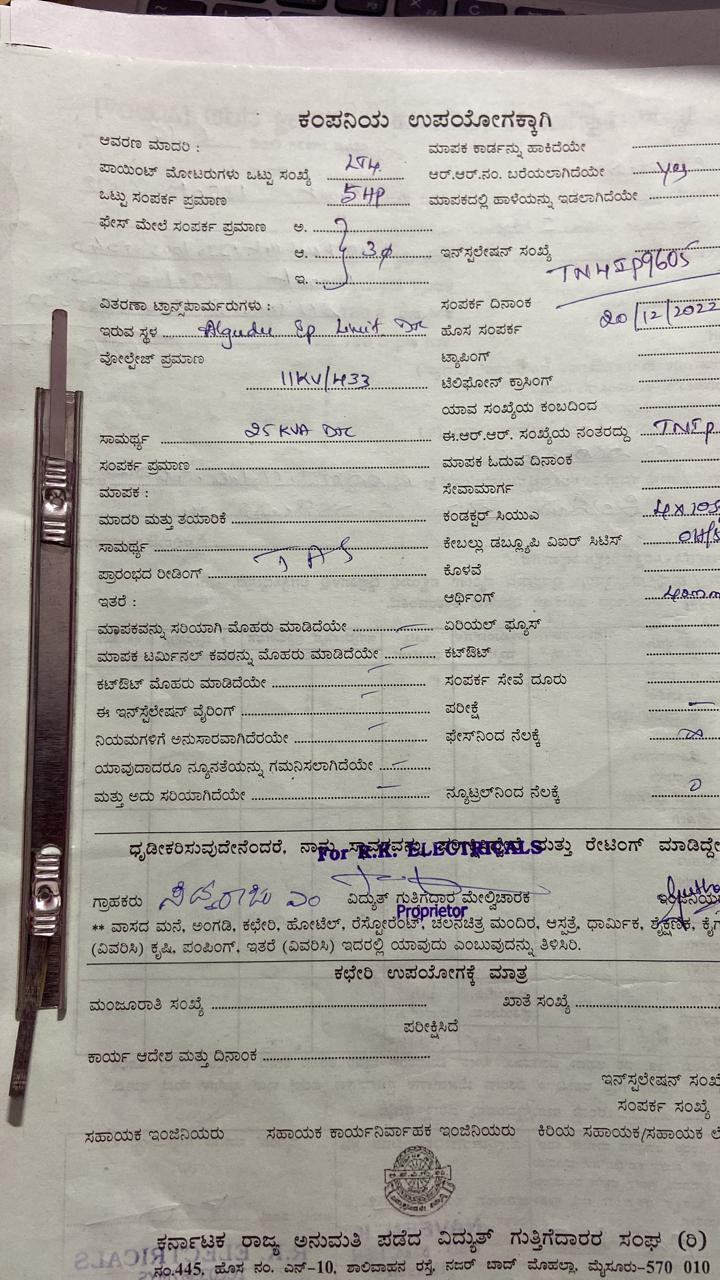 ಕಂಪನಿಯ ಉಪಯೋಗಕ್ಕಾಗಿ
ಆವರಣ ಮಾದರಿ :
ಮಾಪಕ ಕಾರ್ಡನ್ನು ಹಾಕಿದೆಯೇ
ಪಾಯಿಂಟ್ ಮೋಟರುಗಳು ಒಟ್ಟು ಸಂಖ್ಯೆ LT4
ಆರ್.ಆರ್.ನಂ. ಬರೆಯಲಾಗಿದೆಯೇ yes
ಒಟ್ಟು ಸಂಪರ್ಕ ಪ್ರಮಾಣ 5HP
ಮಾಪಕದಲ್ಲಿ ಹಾಳೆಯನ್ನು ಇಡಲಾಗಿದೆಯೇ
ಫೇಸ್ ಮೇಲೆ ಸಂಪರ್ಕ ಪ್ರಮಾಣ ಅ.
ಆ. 3ф
ಇ.
ಇನ್‌ಸ್ಟಲೇಷನ್ ಸಂಖ್ಯೆ TN4IP9605
ವಿತರಣಾ ಟ್ರಾನ್ಸ್‌ಫಾರ್ಮರುಗಳು :
ಸಂಪರ್ಕ ದಿನಾಂಕ 20/12/2022
ಇರುವ ಸ್ಥಳ
ಹೊಸ ಸಂಪರ್ಕ
ವೋಲ್ಟೇಜ್ ಪ್ರಮಾಣ 11KV/433
ಟ್ಯಾಪಿಂಗ್
ಟೆಲಿಫೋನ್ ಕ್ರಾಸಿಂಗ್
ಯಾವ ಸಂಖ್ಯೆಯ ಕಂಬದಿಂದ
ಸಾಮರ್ಥ್ಯ 25 KVA
ಈ.ಆರ್.ಆರ್. ಸಂಖ್ಯೆಯ ನಂತರದ್ದು TNIP
ಸಂಪರ್ಕ ಪ್ರಮಾಣ
ಮಾಪಕ ಓದುವ ದಿನಾಂಕ
ಮಾಪಕ :
ಸೇವಾಮಾರ್ಗ
ಮಾದರಿ ಮತ್ತು ತಯಾರಿಕೆ
ಕಂಡಕ್ಟರ್ ಸಿಯುಎ
ಸಾಮರ್ಥ್ಯ
ಕೇಬಲ್ಲು ಡಬ್ಲ್ಯೂಪಿ ವಿಐರ್ ಸಿಟಿಸ್
ಪ್ರಾರಂಭದ ರೀಡಿಂಗ್
ಕೊಳವೆ
ಇತರೆ :
ಆರ್ಥಿಂಗ್
ಮಾಪಕವನ್ನು ಸರಿಯಾಗಿ ಮೊಹರು ಮಾಡಿದೆಯೇ
ಏರಿಯಲ್ ಫ್ಯೂಸ್
ಮಾಪಕ ಟರ್ಮಿನಲ್ ಕವರನ್ನು ಮೊಹರು ಮಾಡಿದೆಯೇ
ಕಟ್‌ಔಟ್
ಕಟ್‌ಔಟ್ ಮೊಹರು ಮಾಡಿದೆಯೇ
ಸಂಪರ್ಕ ಸೇವೆ ದೂರು
ಈ ಇನ್‌ಸ್ಟಲೇಷನ್ ವೈರಿಂಗ್
ಪರೀಕ್ಷೆ
ನಿಯಮಗಳಿಗೆ ಅನುಸಾರವಾಗಿದೆರೆಯೇ
ಫೇಸ್‌ನಿಂದ ನೆಲಕ್ಕೆ
ಯಾವುದಾದರೂ ನ್ಯೂನತೆಯನ್ನು ಗಮನಿಸಲಾಗಿದೆಯೇ
ಮತ್ತು ಅದು ಸರಿಯಾಗಿದೆಯೇ
ನ್ಯೂಟ್ರಲ್‌ನಿಂದ ನೆಲಕ್ಕೆ
ಧೃಡೀಕರಿಸುವುದೇನೆಂದರೆ, ನಾವು ಮತ್ತು ರೇಟಿಂಗ್ ಮಾಡಿದ್ದೇ
For R.K. ELECTRICALS
ಗ್ರಾಹಕರು ಸಿದ್ದರಾಜು ಎಂ ವಿದ್ಯುತ್ ಗುತ್ತಿಗೆದಾರ ಮೇಲ್ವಿಚಾರಕ
Proprietor
** ವಾಸದ ಮನೆ, ಅಂಗಡಿ, ಕಛೇರಿ, ಹೋಟೆಲ್, ರೆಸ್ಟೋರೆಂಟ್, ಚಲನಚಿತ್ರ ಮಂದಿರ, ಆಸ್ಪತ್ರೆ, ಧಾರ್ಮಿಕ, ಶೈಕ್ಷಣಿಕ, ಕೈಗ
(ವಿವರಿಸಿ) ಕೃಷಿ, ಪಂಪಿಂಗ್, ಇತರೆ (ವಿವರಿಸಿ) ಇದರಲ್ಲಿ ಯಾವುದು ಎಂಬುವುದನ್ನು ತಿಳಿಸಿರಿ.
ಕಛೇರಿ ಉಪಯೋಗಕ್ಕೆ ಮಾತ್ರ
ಮಂಜೂರಾತಿ ಸಂಖ್ಯೆ
ಖಾತೆ ಸಂಖ್ಯೆ
ಪರೀಕ್ಷಿಸಿದೆ
ಕಾರ್ಯ ಆದೇಶ ಮತ್ತು ದಿನಾಂಕ
ಇನ್‌ಸ್ಟಲೇಷನ್ ಸಂಖ್ಯೆ
ಸಂಪರ್ಕ ಸಂಖ್ಯೆ
ಸಹಾಯಕ ಇಂಜಿನಿಯರು ಸಹಾಯಕ ಕಾರ್ಯನಿರ್ವಾಹಕ ಇಂಜಿನಿಯರು ಕಿರಿಯ ಸಹಾಯಕ/ಸಹಾಯಕ ಲೆ
ಕರ್ನಾಟಕ ರಾಜ್ಯ ಅನುಮತಿ ಪಡೆದ ವಿದ್ಯುತ್ ಗುತ್ತಿಗೆದಾರರ ಸಂಘ (ರಿ)
ನಂ.445, ಹೊಸ ನಂ. ಎನ್-10, ಶಾಲಿವಾಹನ ರಸ್ತೆ, ನಜರ್ ಬಾದ್ ಮೊಹಲ್ಲಾ, ಮೈಸೂರು-570 010